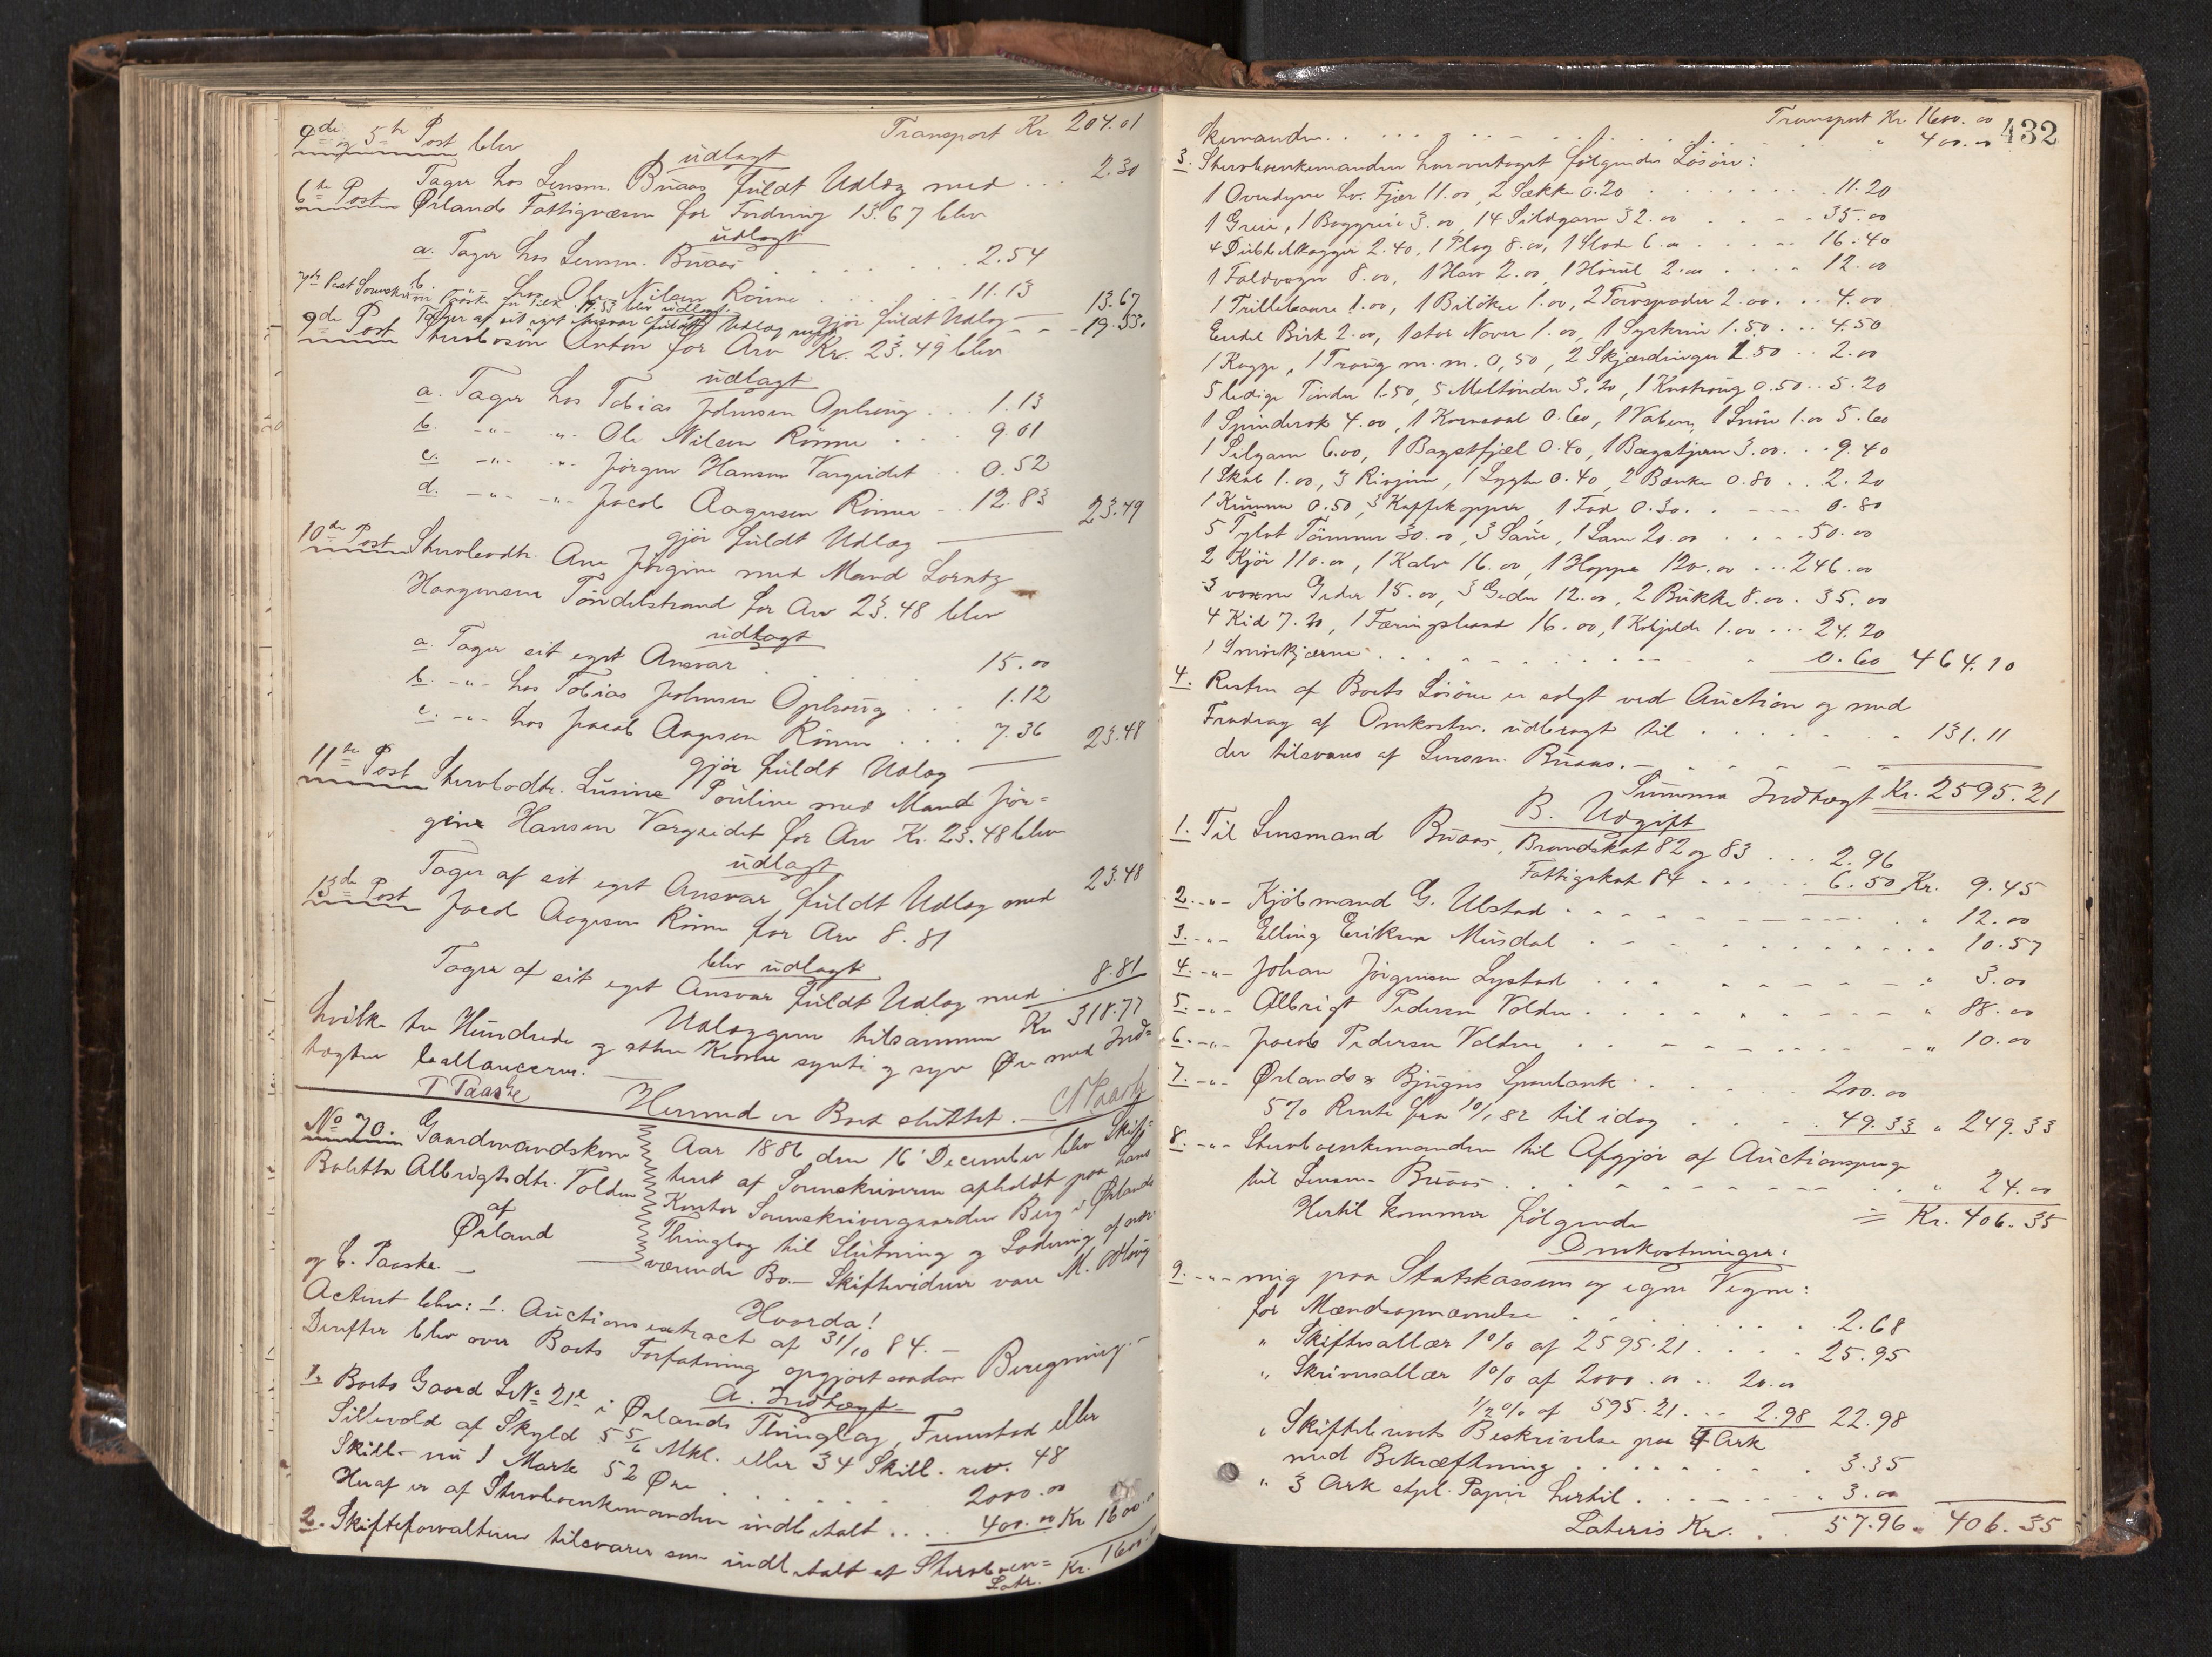 Transport Kr. 204.01
4de og 5te Post blev
udlagt
Tager hos Lensm. Buaas fuldt Udlæg med ... 2.30
6te Post Ørlands Fattigvæsen for Fordring 13.67 blev
udlagt
a. Tager hos Lensm. Buaas . . . . 2.54
b. -"- hos Ole Nilsen Rönne . . . 11.13
gjör fuldt Udlæg 13.67
7de Post Sorenskriver Paaske for 19.53 blev udlagt:
Tager af sit eget Ansvar fuldt Udlæg med - - 19.53.
9de Post Stervbosön Anton for Arv Kr. 23.49 blev
udlagt
a. Tager hos Tobias Johnsen Ophoug . . . 1.13
b. -"- -"- Ole Nilsen Rönne . . . 9.01
c. -"- -"- Jörgen Hansen Vargeidet . . 0.52
d. -"- -"- Jacob Aagesen Rönne . . 12.83
gjör fuldt Udlæg 23.49
10de Post Stervbodtr. Ane Jörgine med Mand Lorntz
Haagensen Töndelstrand for Arv 23.48 blev
udlagt
a. Tager sit eget Ansvar . . . . 15.00
b. -"- hos Tobias Johnsen Ophoug . . . 1.12
c. -"- hos Jacob Aagesen Rönne . . . 7.36
gjör fuldt Udlæg 23.48
11te Post Stervbodtr. Lusine Pouline med Mand Jör=
gen Hansen Vargeidet for Arv Kr. 23.48 blev
udlagt
Tager af sit eget Ansvar fuldt Udlæg med 23.48
13de Post Jacob Aagesen Rönne for Arv 8.81
blev udlagt
Tager af sit eget Ansvar fuldt Udlæg med . 8.81
Udlæggene tilsammen Kr 318.77
hvilke tre Hundrede og atten Kroner sytti og syv Øre med Ind=
tægten ballancerer.
Hermed er Boet sluttet. —
T Paaske
C Paaske
No 70. Gaardmandskone
Beletta Albrigtsdtr. Volden
af
Ørland
Aar 1886 den 16' December blev Skif=
teret af Sorenskriveren afholdt paa hans
Kontor Sorenskrivergaarden Berg i Ørlands
Thinglag til Slutning og Lodning af over=
værende Bo. — Skiftevidner vare M. Opoug
og C. Paaske. —
Hvorda!
Acteret blev: 1. Auctionsextract af 31/10 84. —
Derefter blev over Boets Forfatning opgjort saadan Beregning. —
A. Indtægt
1. Boets Gaard LNo 21e i Ørlands Thinglag, Fremstad eller
Sillevold af Skyld 5 5/6 Mkl. eller 34 Skill. rev. 48
Skill. — nu 1 Mark 52 Øre . . . . 2000.00
Heraf er af Stervboenkemanden indbetalt . . . . 400.00 Kr 1600.00
2. Skifteforvalteren tilsvarer som indbetalt af Stervboen=
Latr. Kr. 1600.00
432
Transport Kr. 1600.00
kemanden . . . . . . " 400.00
3. Stervboenkemanden har overtaget fölgende Lösöre:
1 Overdyne hv. Fjær 11.00, 2 Sække 0.20 . . . 11.20
1 Greie, 1 Baggreie 3.00, 14 Sildgarn 32.00 . . . 35.00
4 Dubbelkagger 2.40, 1 Plog 8.00, 1 Slode 6.00 . . . 16.40
1 Faldvogn 8.00, 1 Harv 2.00, 1 Hövul 2.00 . . . 12.00
1 Trillebaare 1.00, 1 Bilöxe 1.00, 2 Torvspader 2.00 . . . 4.00
Endel Birk 2.00, 1 stor Naver 1.00, 1 Syskrin 1.50 . . . 4.50
1 Kagge, 1 Traug m.m. 0,50, 2 Skjærdinger 1.50 . . 2.00
5 ledige Tönder 1.50, 5 Meltönder 3.20, 1 Knatraug 0.50 . . 5.20
1 Spinderok 4.00, 1 Kornsold 0.60, 1 Vaben, 1 Snöre 1.00 5.60
1 Silgarn 6.00, 1 Bagstfjæl 0.40, 1 Bagstjern 3.00 . . . 9.40
1 Skab 1.00, 3 Rivjern, 1 Lygte 0.40, 2 Bænke 0.80 . . 2.20
1 Krumme 0.50, 3 Kaffekopper, 1 Fad 0.30 . . . 0.80
5 Tylvt Tömmer 30.00, 3 Saue, 1 Lam 20.00 . . . 50.00
2 Kjör 110.00, 1 Kalv 16.00, 1 Hoppe 120.00 . . . 246.00
3 voxne Geder 15.00, 3 Geder 12.00, 2 Bukke 8.00 . 35.00
4 Kid 7.20, 1 Færingsbaad 16.00, 1 Kobjelde 1.00 . . . 24.20
1 Smörkjærne . . . . . 0.60 464.10
4. Resten af Boets Lösöre er solgt ved Auction og med
Fradrag af Omkostn. udbragt til . . . . " 131.11
der tilsvares af Lensm. Buaas. —
Summa Indtægt Kr. 2595.21
B. Udgift
1. Til Lensmand Buaas, Brandskat 82 og 83 . . . 2.96
Fattigskat 84 . . . . 6.50 Kr. 9.45
2. -"- Kjöbmand G. Ulstad . . . . . " 12.00
3. -"- Elling Eriksen Musdal . . . . . " 10.57
4. -"- Johan Jörgensen Lystad . . . . . " 3.00
5. -"- Albrigt Pedersen Volden . . . . . " 88.00
6. -"- Jacob Pedersen Volden . . . . . " 10.00
7. -"- Ørlands & Bjugns Sparebank . . . 200.00
5% Rente fra 10/1 82 til idag . . . . 49.33 " 249.33
8. -"- Stervboenkemanden til Afgjör af Auctionspenge
til Lensm. Buaas . . . . . . " 24.00
= Kr. 406.35
Hertil kommer fölgende
Omkostninger:
9. -"- mig paa Statskassens og egne Vegne:
for Mændsopnævnelse . . . . . 2.68
" Skiftesallær 1% af 2595.21 . . . . 25.95
" Skriversallær 1% af 2000.00 . . 20.00
1/2% af 595.21 . . . 2.98 22.98
" Skiftebrevets Beskrivelse paa 4 Ark
med Bekræftning . . . . . . 3.35
" 3 Ark stpl. Papir hertil . . . . . 3.00
Lateris Kr. . . 57.96 " 406.35